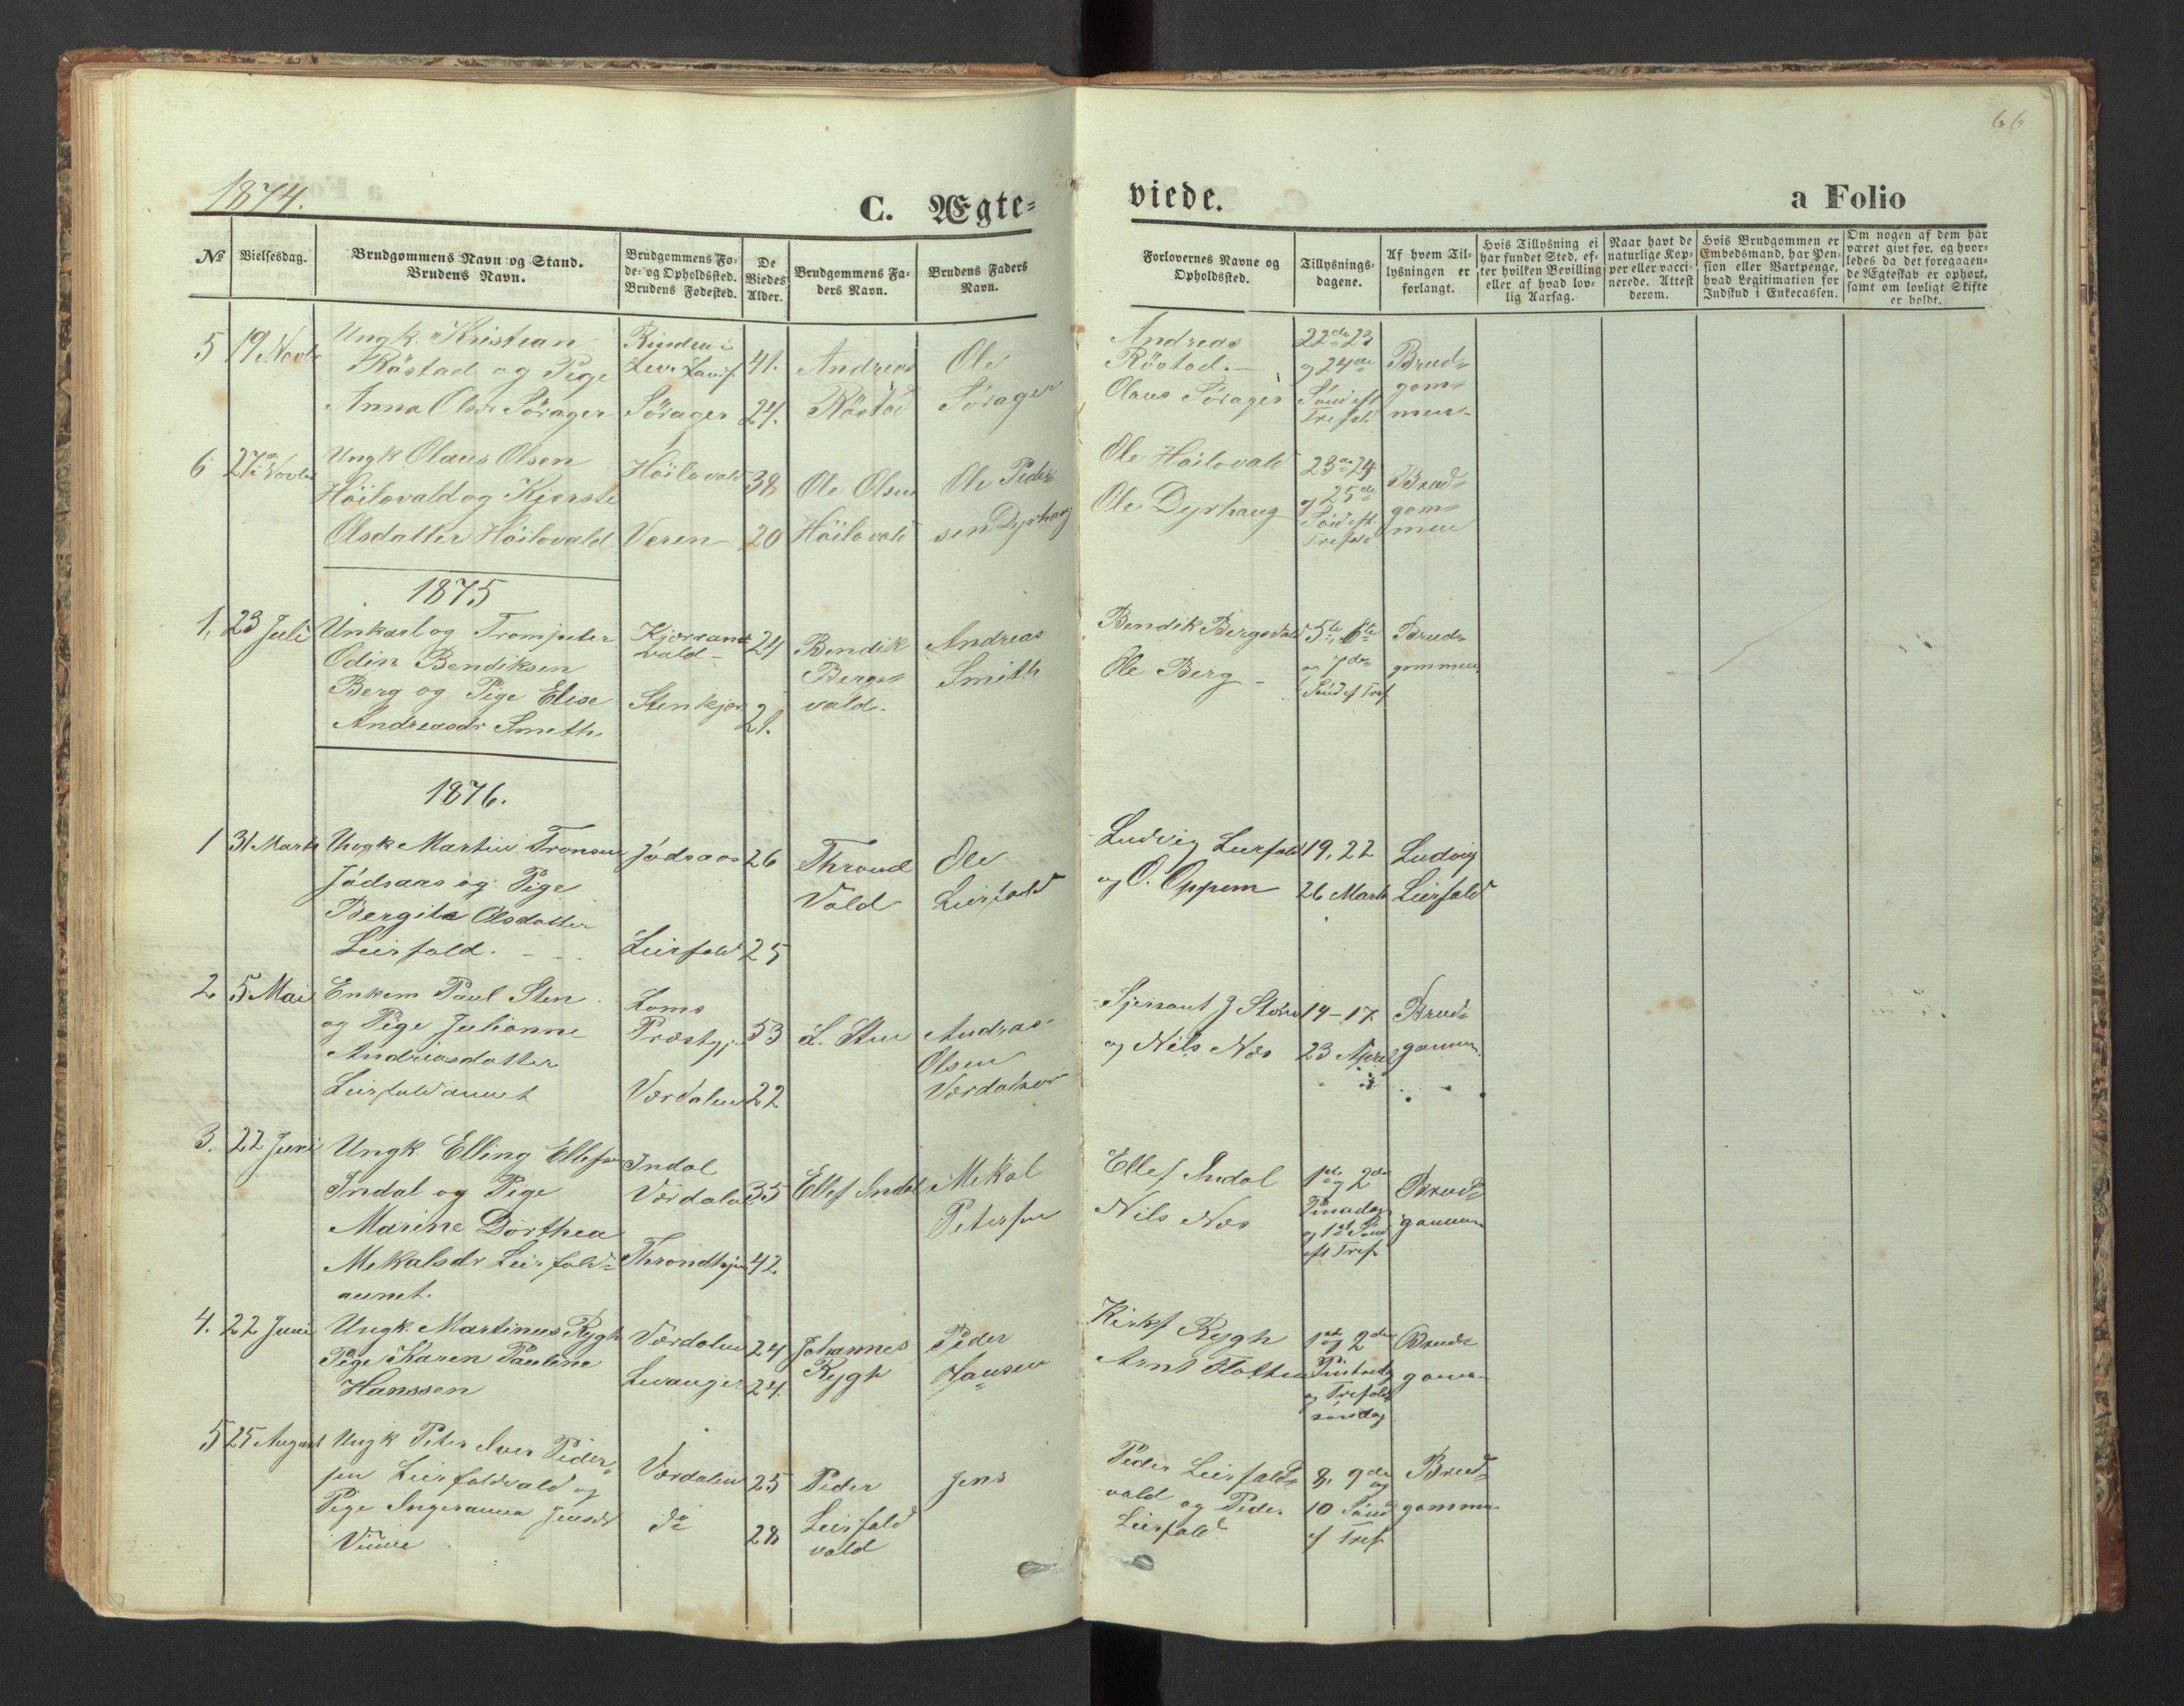 66
1874.
C. Ægte-
viede.
a Folio
No
Vielsesdag.
Brudgommens Navn og Stand.
Brudens Navn.
Brudgommens Fø-
de- og Opholdssted.
Brudens Fødested.
De
Viedes
Alder.
Brudgommens Fa-
ders Navn.
Brudens Faders
Navn.
Forlovernes Navne og
Opholdssted.
Tillysnings-
dagene.
Af hvem Til-
lysningen er
forlangt.
Hvis Tillysning ei
har fundet Sted, ef-
ter hvilken Bevilling
eller af hvad lov-
lig Aarsag.
Naar havt de
naturlige Kop-
per eller vacci-
nerede. Attest
derom.
Hvis Brudgommen er
Embedsmand, har Pen-
sion eller Vartpenge,
hvad Legitimation for
Indskud i Enkecassen.
Om nogen af dem har
været givt før, og hvor-
ledes da det foregaaen-
de Ægteskab er ophørt,
samt om lovligt Skifte
er holdt.
5 19 Novbr
Ungk. Kristian
Röstad og Pige
Anna Olsdr Sörager
Lev.
Sörager
41.
24.
Andreas
Röstad
Ole
Sörager
Andreas
Röstad.
Olaus Sörager
22de 23
og 24de
Sönd eft
Trefol.
Brud-
gom-
men
6 27 Novbr
Ungk Olaus Olsen
Höilovald og Kjerste
Olsdatter Höilovald
Höilovald
Veren
38
20
Ole Olsen
Höilovald
Ole Peder-
sen Dyrhaug
Ole Höilovald
Ole Dyrhaug
23 24
og 25de
Sönd eft.
Trefold
Brud-
gom-
men
1875
1. 23 Juli
Unkarl og Trompeter
Odin Bendiksen
Berg og Pige Elise
Andreasdr Smith
vald
Stenkjær
24
21.
Bendik
Bergs-
vald
Andreas
Smith
Bendik Bergsvald
Ole Berg
5te 6te
og 7de
Sönd ef Tref
Brud-
gommen
1876.
1 31 Marts
Ungk Martin Tronsen
Jådsaas og Pige
Bergite Olsdatter
Leirfald.
Jådsaas
Leirfald
26
25
Thrond
Vald
Ole
Leirfald
Ludvig Leirfald
og O. Oppem
19. 22
26 Marts
Ludvig
Leirfald
2 5 Mai
Enkem Paul Sten
og Pige Julianne
Andreasdatter
Leirfaldaunet
Loms
Præstgj
Værdalen
53
22
L. Sten
Andreas
Olsen
Værdalsør
og Nils Næs
14 - 17
23 April
Brud-
gommen
3. 22 Juni
Ungk. Elling Ellefsen
Indal og Pige
Marine Dorthea
Mekalsdr Leirfald-
aunet.
Indal
Værdalen
Throndhjem
35
42.
Ellef Indal
Mekal
Petersen
Ellef Indal
Nils Næs
1ste og 2den
Pinsedag
og 1ste Sönd
eft Tref
Brud-
gommen
4. 22 Juni
Ungk. Martinus Rygh
Pige Karen Pauline
Hanssen
Værdalen
Levanger
24
24.
Johannes
Rygh
Peder
Hansen
Rygh
Arnt Holten
1ste og 2den
Pinsedag
og Trefold
söndag
Brud-
gom
5 25 August
Ungk Peter Iver Peder-
sen Leirfaldvald og
Pige Ingeranna Jensdr
Vinne
Værdalen
do
25
28
Peder
Leirfald
vald
Jens
Peder Leirfald-
vald og Peder
Leirfald
8. 9de og
10 Sönd
ef Tref
Brud-
gommen